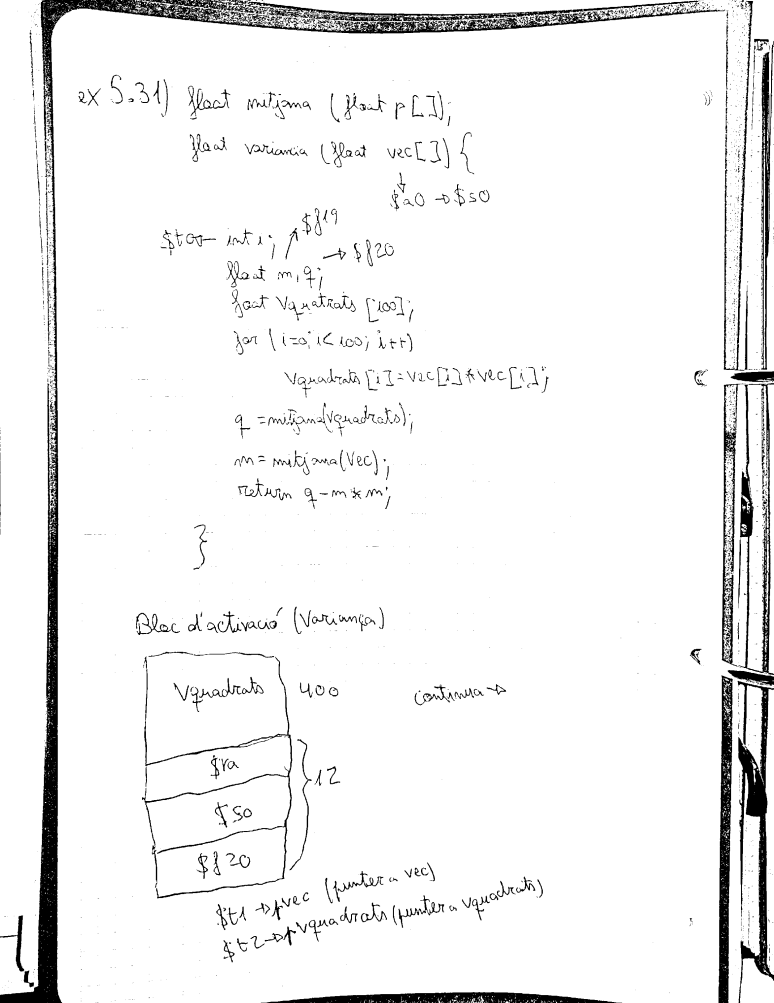 ex 5.31) float mitjana (float p[]);
float variancia (float vec[]) {
↓
$a0 → $s0
$f19
$t0 ← int i;
→ $f20
float m, q;
float Vquatrats [100];
for (i=0; i<100; i++)
Vquadrats [i] = vec[i] * vec[i];
q = mitjana(Vquadrats);
m = mitjana(Vec);
return q - m * m;
}
Bloc d'activació (Variança)
Vquadrats 400 continua →
$ra
12
$s0
$f20
$t1 → pvec (punter a vec)
$t2 → pvquadrats (punter a vquadrats)